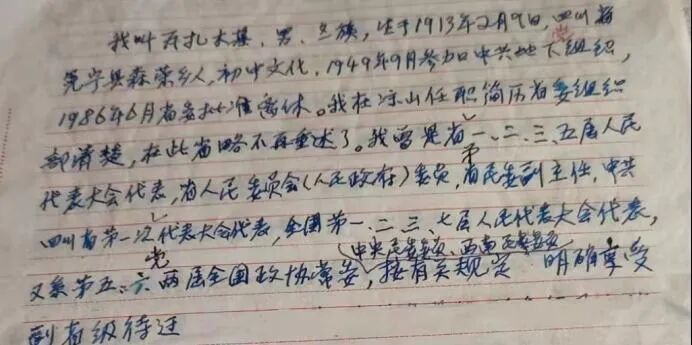 我叫瓦扎木基、男、彝族，生于1913年2月9日，四川省
冕宁县森荣乡人，初中文化，1949年9月参加中共地下党组织，
1986年6月省委批准离休。我在凉山任职简历省委组织
部清楚，在此省略不再重述了。我曾是省第一、二、三、五届人民
代表大会代表，省人民委员会(人民政府)委员，省民委副主任，中共
四川省第一次党代表大会代表，全国第一、二、三、七届人民代表大会代表，
又系第五、六两届全国政协常委，(中央民委委员、西南民委委员)按有关规定 明确享受
副省级待迂